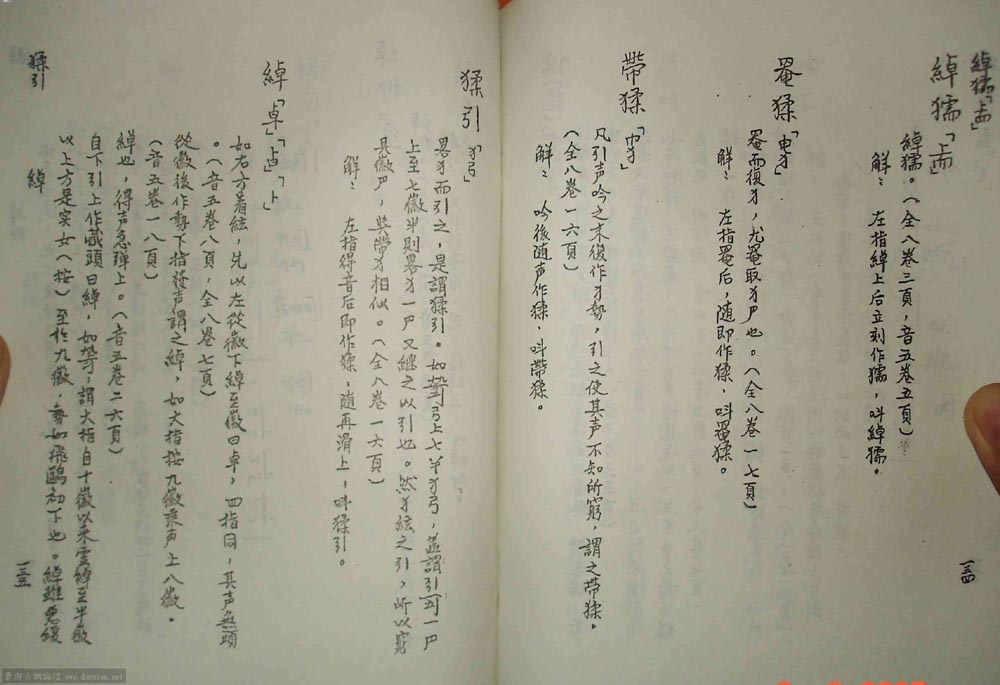 綽猱「上」
綽猱「上」
綽猱。(全八卷三頁,音五卷五頁)
解:左指綽上后立刻作猱,叫綽猱。
罨猱
罨而復犭,尤罨取犭尸也。(全八卷一七頁)
解:左指罨后,随即作猱,叫罨猱。
帶猱
凡引声吟之末後作犭勢,引之使其声不知所窮,謂之带猱。
(全八卷一六頁)
解:吟後随声作猱,叫帶猱。
猱引「犭弓」
畧犭而引之,是謂猱引。如 弓上七半犭弓,盖謂引 一尸
上至七徽半則畧犭一尸又継之以引也。然犭絃之引,所以窮
具徽尸,與帶犭相似。(全八卷一六頁)
解:左指得音后即作猱,随再滑上,叫猱引。
綽「卓」「占」「卜」
如右方着絃,先以左從徽下綽至徽曰卓,四指同,其声無頭
。(音五卷八頁,全八卷七頁)
從徽後作勢下指發声謂之綽,如大指按九徽乘声上八徽。
(音五卷一八頁)
綽也,得声急擇上。(音五卷二六頁)
自下引上作藏頭曰綽,如 ,謂大指自十徽以來虚綽至半徽
以上方是实女(按)至於九徽,勢如飛鷗初下也。綽雖急緩
猱引
綽
一三三
一三四
www.donutau.net